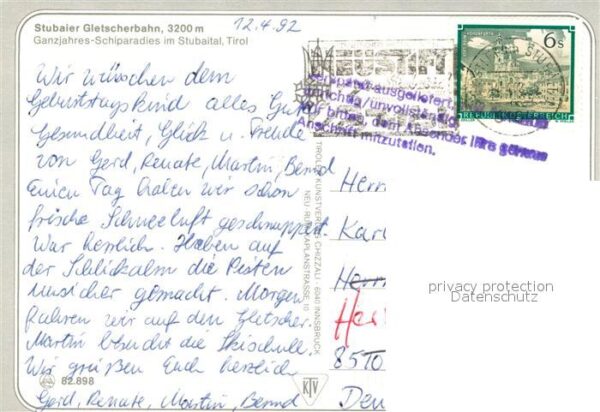 Stubaier Gletscherbahn, 3200 m
Ganzjahres-Schiparadies im Stubaital, Tirol
12.4.92
Wir wünschen dem
Geburtstagskind alles Gute
Gesundheit, Glück u. Freude
von Gerd, Renate, Martin, Bernd
Einen Tag haben wir schon
frische Schneeluft geschnuppert.
War herrlich. Haben auf
der Schlickalm die Pisten
unsicher gemacht. Morgen
fahren wir auf den Gletscher.
Martin besucht die Skischule.
Wir grüßen Euch herzlich
Gerd, Renate, Martin, Bernd
82.898
TIROLER KUNSTVERLAG CHIZZALI · 6040 INNSBRUCK
NEU-RUM, KAPLANSTRASSE 10
KTV
NEUSTIFT
6 S
REPUBLIK ÖSTERREICH
verspätet ausgeliefert,
unrichtig/unvollständig
bitte, dem Absender Ihre genaue
Anschrift mitzuteilen.
Herr
Kar
Herr
Her
8570
Deu
privacy protection
Datenschutz